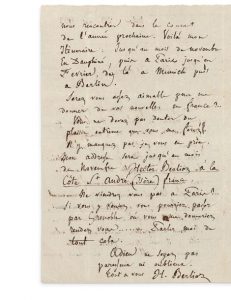 nous rencontrer dans le courant
de l'année prochaine. Voilà mon
itinéraire: Jusqu'au mois de novembre
en Dauphiné, puis à Paris jusqu'en
Février, de là à Munich puis
à Berlin.
Serez vous assez aimable pour me
donner de vos nouvelles en france?
Vous ne devez pas douter du
plaisir extrême que vous me
n'y manquez pas je vous en prie.
Mon adresse sera jusqu'au mois
de Novembre Mr Hector Berlioz à la
Côte St André (Isère) france
viendrez vous pas à Paris?
Si vous y venez, vous pourriez passer
par Grenoble où vous me donneriez
rendez vous. Parlez moi de
tout cela.
Adieu ne soyez pas
paresseux ni oublieux.
Tout à vous H. Berlioz